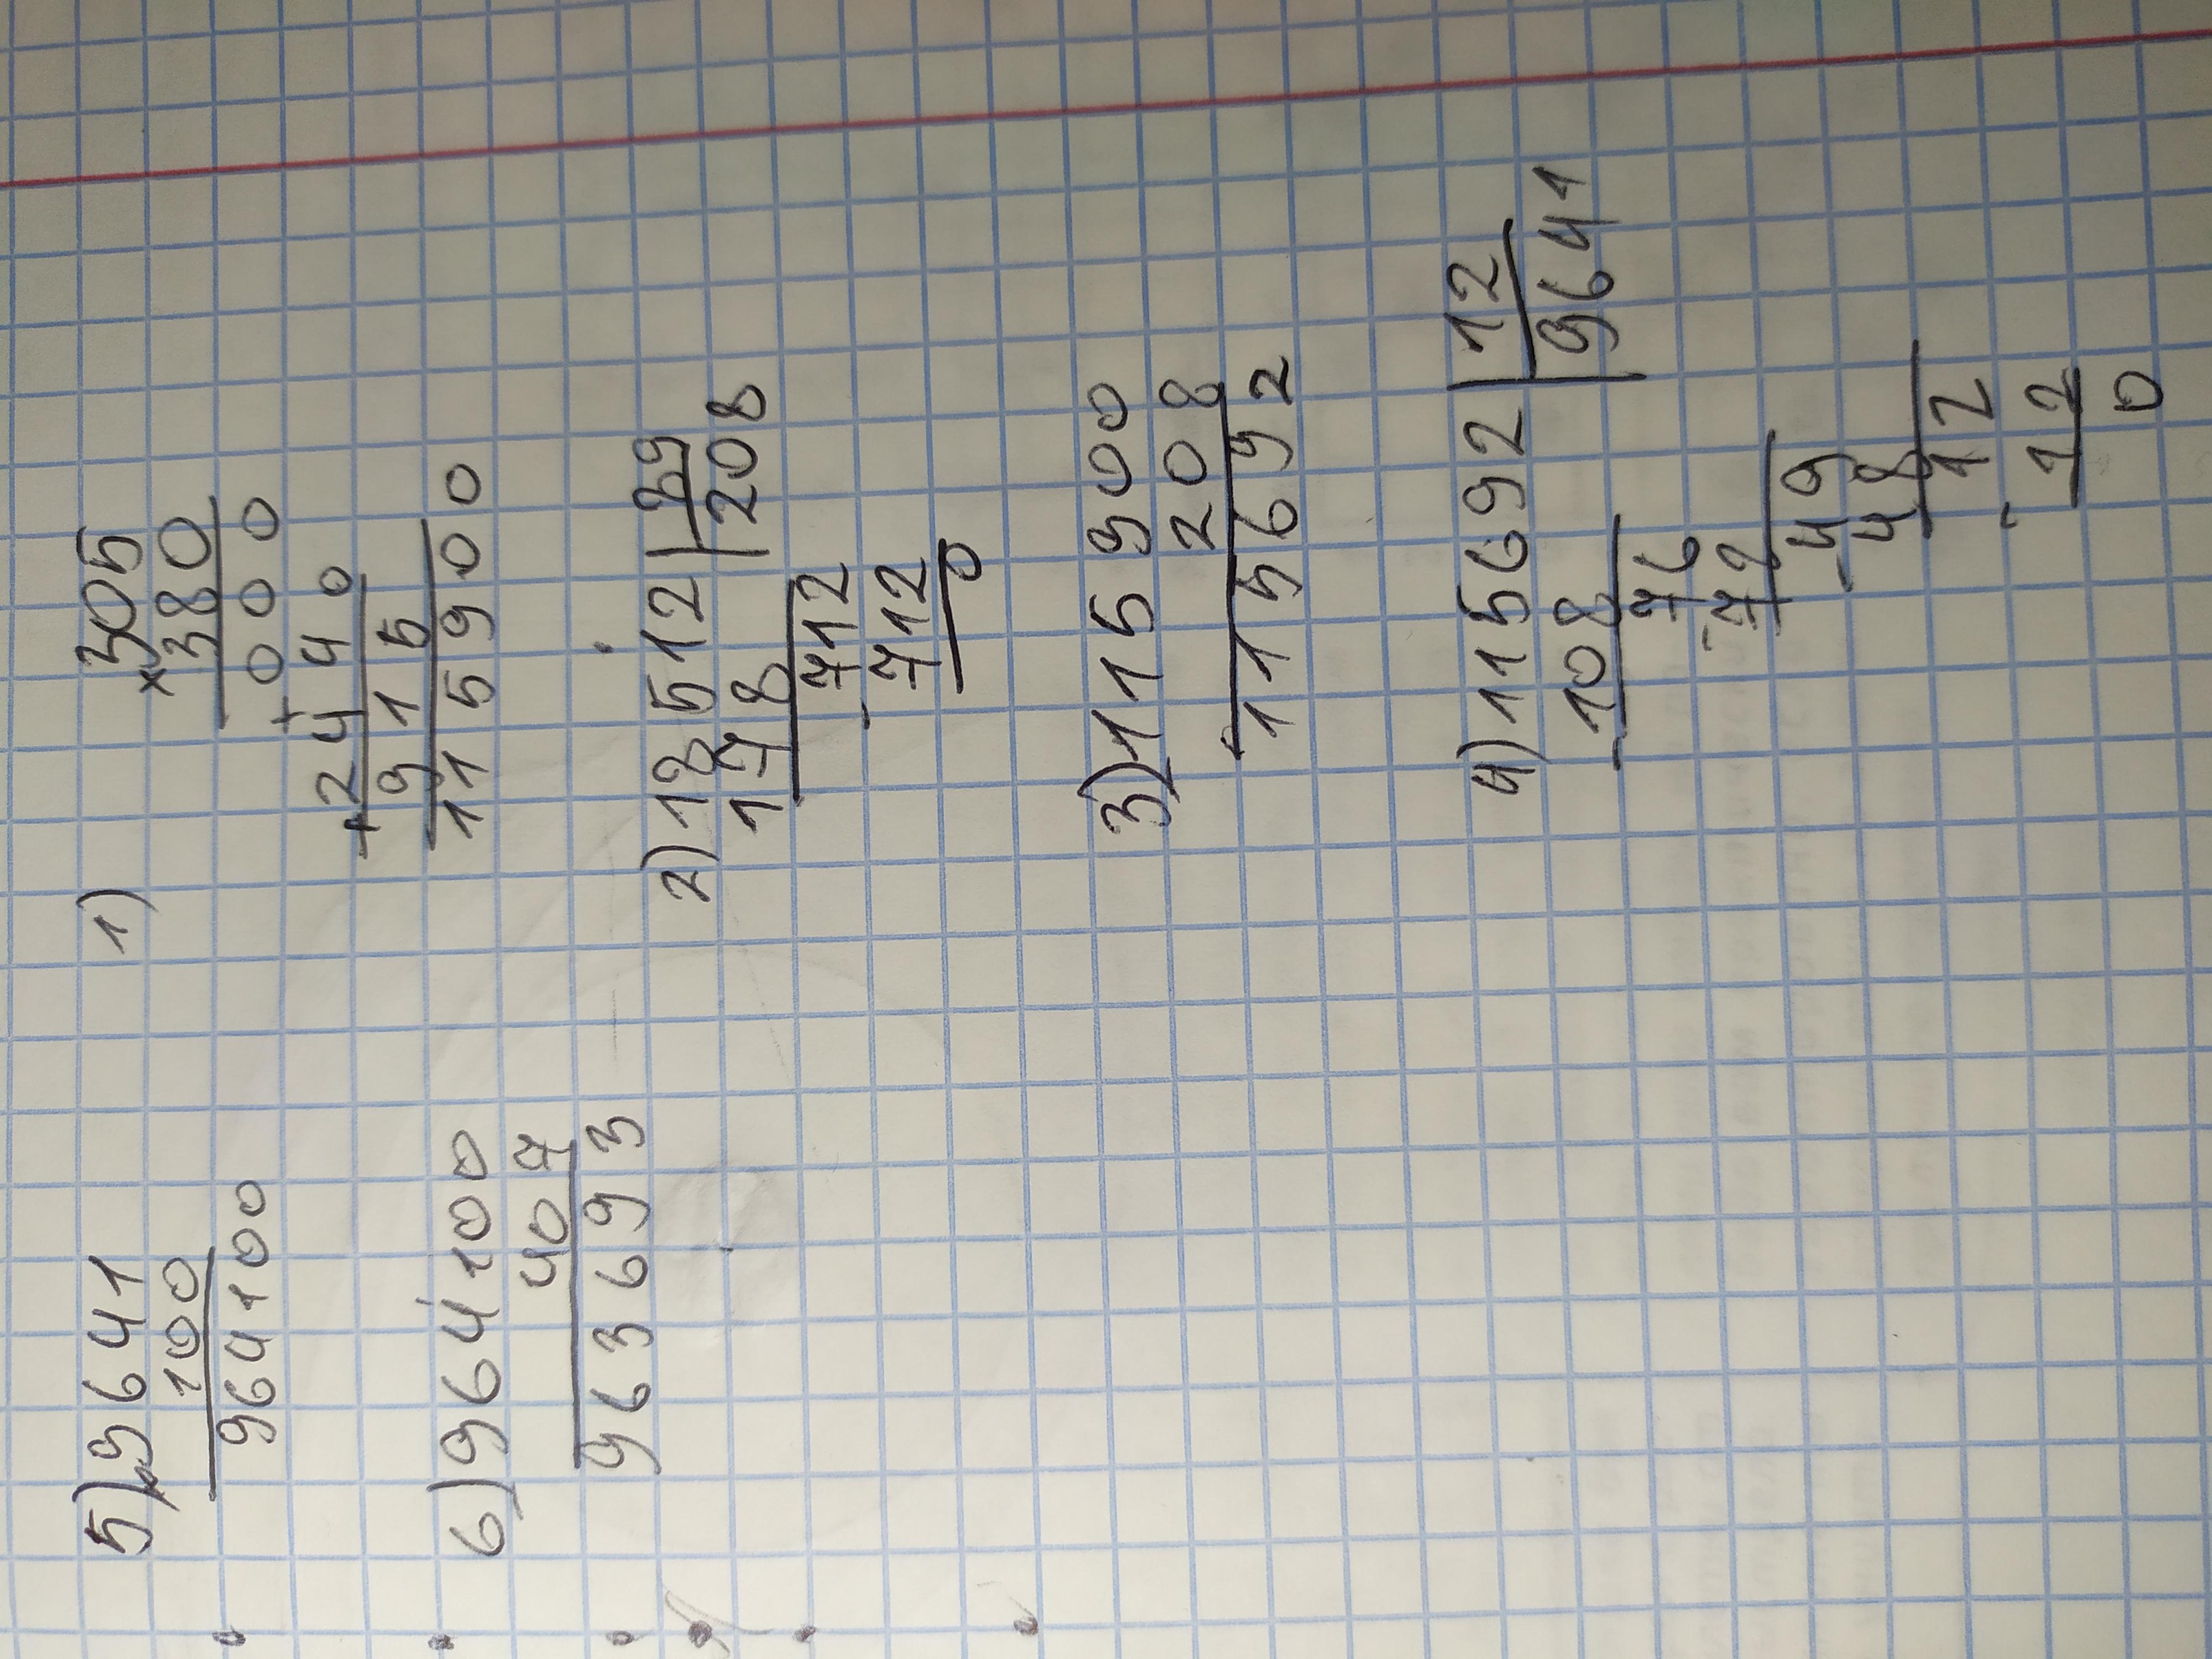 1) 305
× 380
000
+
2440
+
915
115900
2) 18512 | 89
178 | 208
712
- 712
0
3) 115900
208
115692
4) 115692 | 12
- 108 | 9641
76
- 72
- 49
48
12
- 12
0
5) 9641
100
96410 0
6) 964100
407
963693